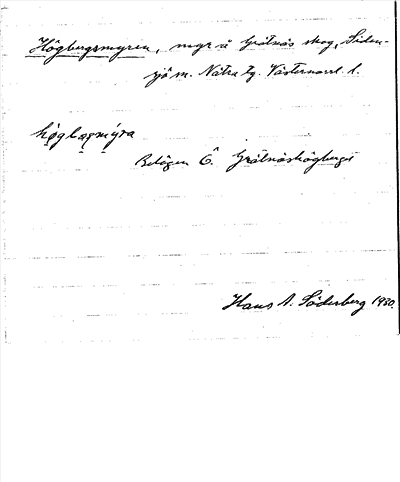 Högbergsmyren, myr å Grätnäs skog, Siden-
sjö sn. Nätra tg. Västernorrl. l.
högbærsmýra
Belägen Ö. Grätnäshögberget
Hans A. Söderberg 1930.